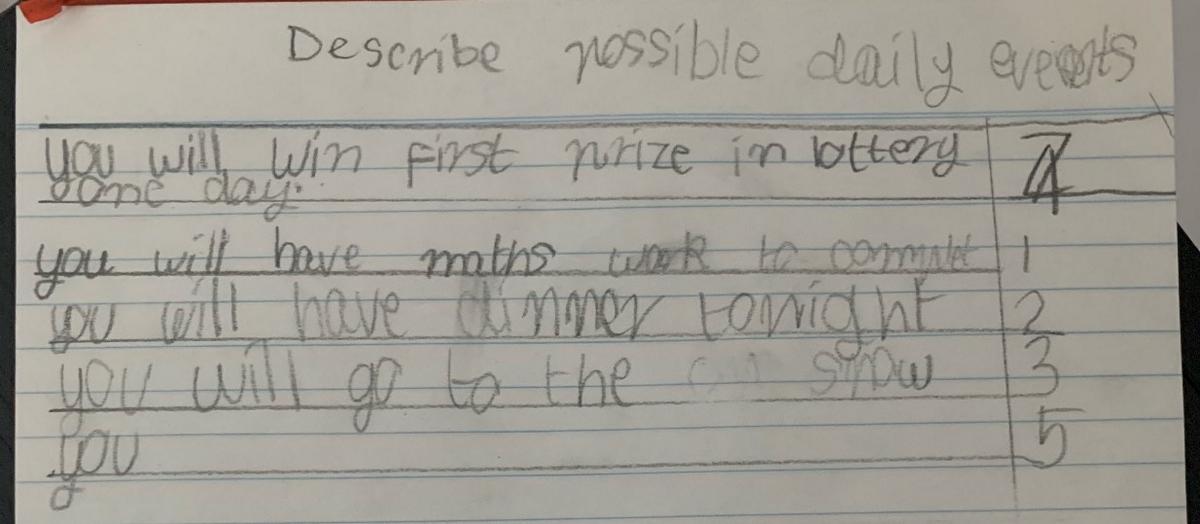 Describe possible daily events
you will win first prize in lottery
one day.
4
you will have maths work to
1
you will have dinner tonight
2
you will go to the show
3
you
5